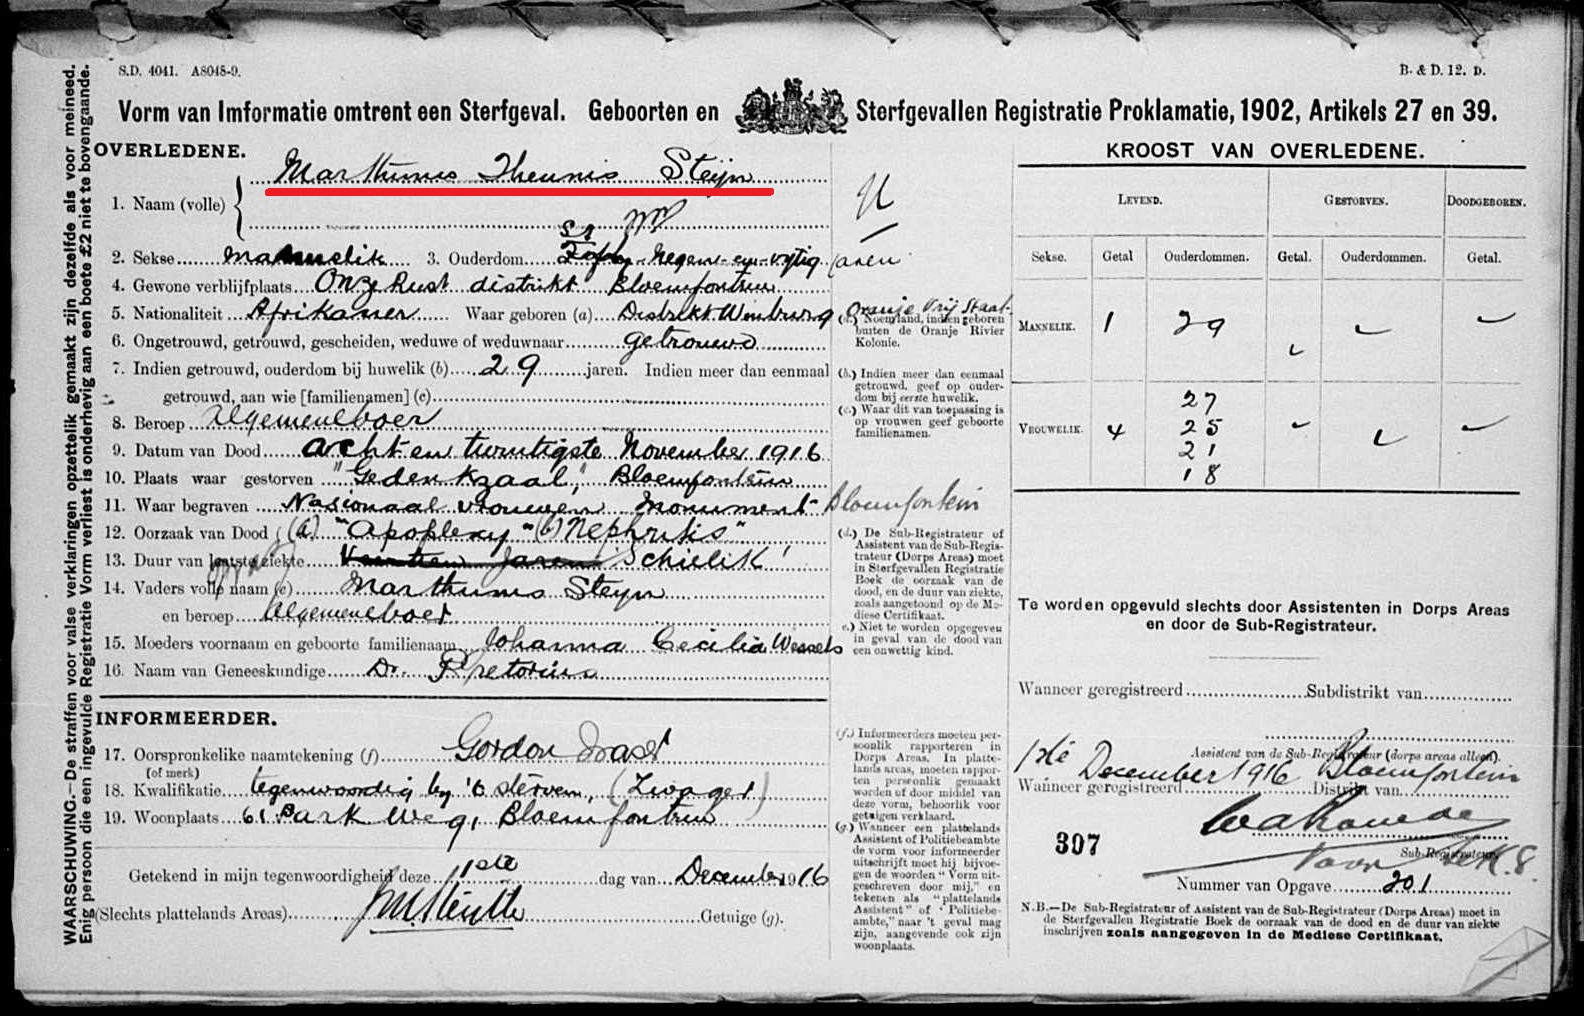 S.D. 4041. A8048-9.
B. & D. 12. D.
Vorm van Imformatie omtrent een Sterfgeval. Geboorten en Sterfgevallen Registratie Proklamatie, 1902, Artikels 27 en 39.
WAARSCHUWING.—De straffen voor valse verklaringen opzettelik gemaakt zijn dezelfde als voor meineed.
Enig persoon die een ingevulde Registratie Vorm verliest is onderhevig aan een boete £2 niet te bovengaande.
OVERLEDENE.
Marthunis Theunis Steijn
1. Naam (volle)
2. Sekse mannelik 3. Ouderdom Negen-en-vijtig jaren
4. Gewone verblijfplaats Onze Rust distrikt Bloemfontein
5. Nationaliteit Afrikaner Waar geboren (a) Distrikt Winburg Oranje Vrij Staat
6. Ongetrouwd, getrouwd, gescheiden, weduwe of weduwnaar getrouwd
7. Indien getrouwd, ouderdom bij huwelik (b) 29 jaren. Indien meer dan eenmaal
getrouwd, aan wie [familienamen] (c)
8. Beroep algemeneboer
9. Datum van Dood acht en twintigste November 1916
10. Plaats waar gestorven "Gedenkzaal," Bloemfontein
11. Waar begraven Nasionaal vrouwen Monument Bloemfontein
12. Oorzaak van Dood (a) "Apoplexy" (b) Nephritis"
13. Duur van laatste ziekte Schielik
14. Vaders volle naam (e) Marthunis Steyn
en beroep Algemeneboer
15. Moeders voornaam en geboorte familienaam Johanna Cecilia Wessels
16. Naam van Geneeskundige Dr. Pretorius
INFORMEERDER.
17. Oorspronkelike naamtekening (f) Gordon Fraser
(of merk)
18. Kwalifikatie tegenwoordig by 't sterven, (Zwager)
19. Woonplaats 61 Park Weg, Bloemfontein
Getekend in mijn tegenwoordigheid deze 1ste dag van December 1916
(Slechts plattelands Areas) Getuige (g).
(a.) Noem land, indien geboren
buiten de Oranje Rivier
Kolonie.
(b.) Indien meer dan eenmaal
getrouwd, geef op ouder-
dom bij eerste huwelik.
(c.) Waar dit van toepassing is
op vrouwen geef geboorte
familienamen.
(d.) De Sub-Registrateur of
Assistent van de Sub-Regis-
trateur (Dorps Areas) moet
in Sterfgevallen Registratie
Boek de oorzaak van de
dood, en de duur van ziekte,
zoals aangetoond op de Me-
diese Certifikaat.
e.) Niet te worden opgegeven
in geval van de dood van
een onwettig kind.
(f.) Informeerders moeten per-
soonlik rapporteren in
Dorps Areas. In platte-
lands areas, moeten rappor-
ten persoonlik gemaakt
worden of door middel van
deze vorm, behoorlik voor
getuigen verklaard.
(g.) Wanneer een plattelands
Assistent of Politiebeambte
de vorm voor informeerder
uitschrijft moet hij bijvoe-
gen de woorden "Vorm uit-
geschreven door mij," en
tekenen als "plattelands
Assistent" of "Politiebe-
ambte," naar 't geval mag
zijn, aangevende ook zijn
woonplaats.
KROOST VAN OVERLEDENE.
LEVEND. GESTORVEN. DOODGEBOREN.
Sekse. Getal Ouderdommen. Getal. Ouderdommen. Getal.
MANNELIK. 1 29
VROUWELIK. 4 27
25
21
18
Te worden opgevuld slechts door Assistenten in Dorps Areas
en door de Sub-Registrateur.
Wanneer geregistreerd Subdistrikt van
Assistent van de Sub-Registrateur (dorps areas alleen).
1ste December 1916 Bloemfontein
Wanneer geregistreerd Distrikt van
307
Sub-Registrateur
Nummer van Opgave 201
N.B.—De Sub-Registrateur of Assistent van de Sub-Registrateur (Dorps Areas) moet in
de Sterfgevallen Registratie Boek de oorzaak van de dood en de duur van ziekte
inschrijven zoals aangegeven in de Mediese Certifikaat.